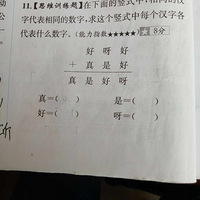 11.【思维训练题】在下面的竖式中,相同的汉
字代表相同的数字,求这个竖式中每个汉字各
代表什么数字。(能力指数★★★★★) 8分
好 呀 好
+ 真 是 好
真 是 好 呀
真=( ) 是=( )
好=( ) 呀=( )